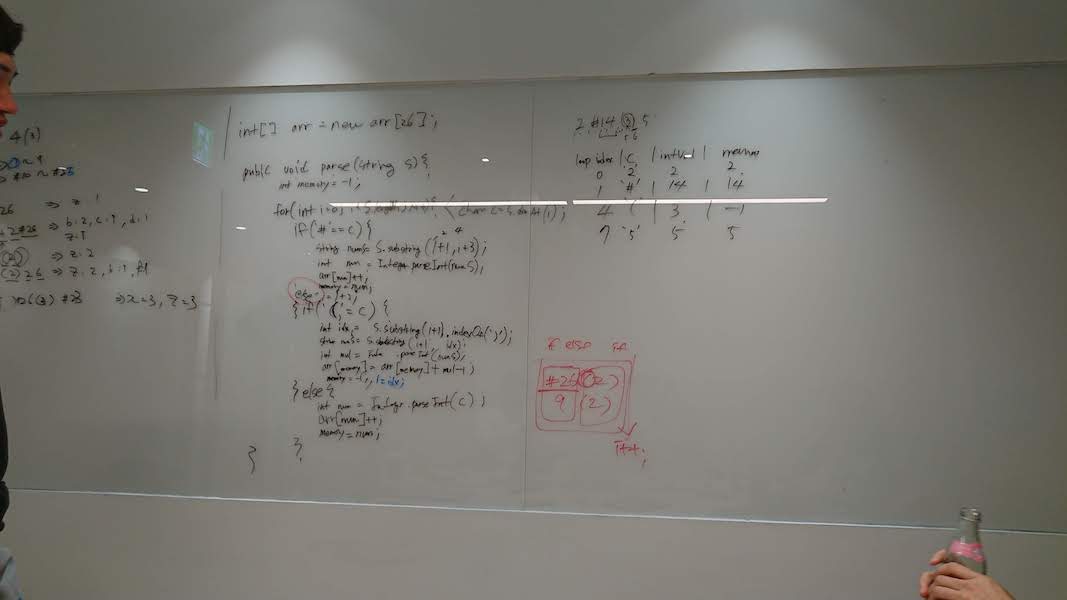 4(3)
26 => z:1
2#26 => b:2, c:1, d:1
z:1
=> z:2
(2)26 => z:2, b:1,
26(3)#23 => x=3, z=3
int[] arr = new arr[26];
public void parse(String S){
int memory = -1;
for(int i=0; i<S.length(); i++){ char C = S.charAt(i);
if('#'==C){
2 4
string numS = S.substring(i+1, i+3);
int num = Integer.parseInt(numS);
arr[num]++;
memory = num;
else i = i+2;
} if('(' = C) {
int idx = S.substring(i+1).indexOf(')');
string numS = S.substring(i+1 idx);
int mul = Inte .parseInt(numS);
arr[memory] = arr[memory] + mul-1;
memory = -1, i=idx;
} else {
int num = Integr.parseInt(C);
arr[num]++;
memory = num;
}
}
2 #14 (3) 5
5 6
loop index | C | intVal | memory
0 '2' 2 2
1 '#' | 14 | 14
4 '(' | 3 | -1
7 '5' 5 5
if else if
#26 (2)
9 (2)
i++;